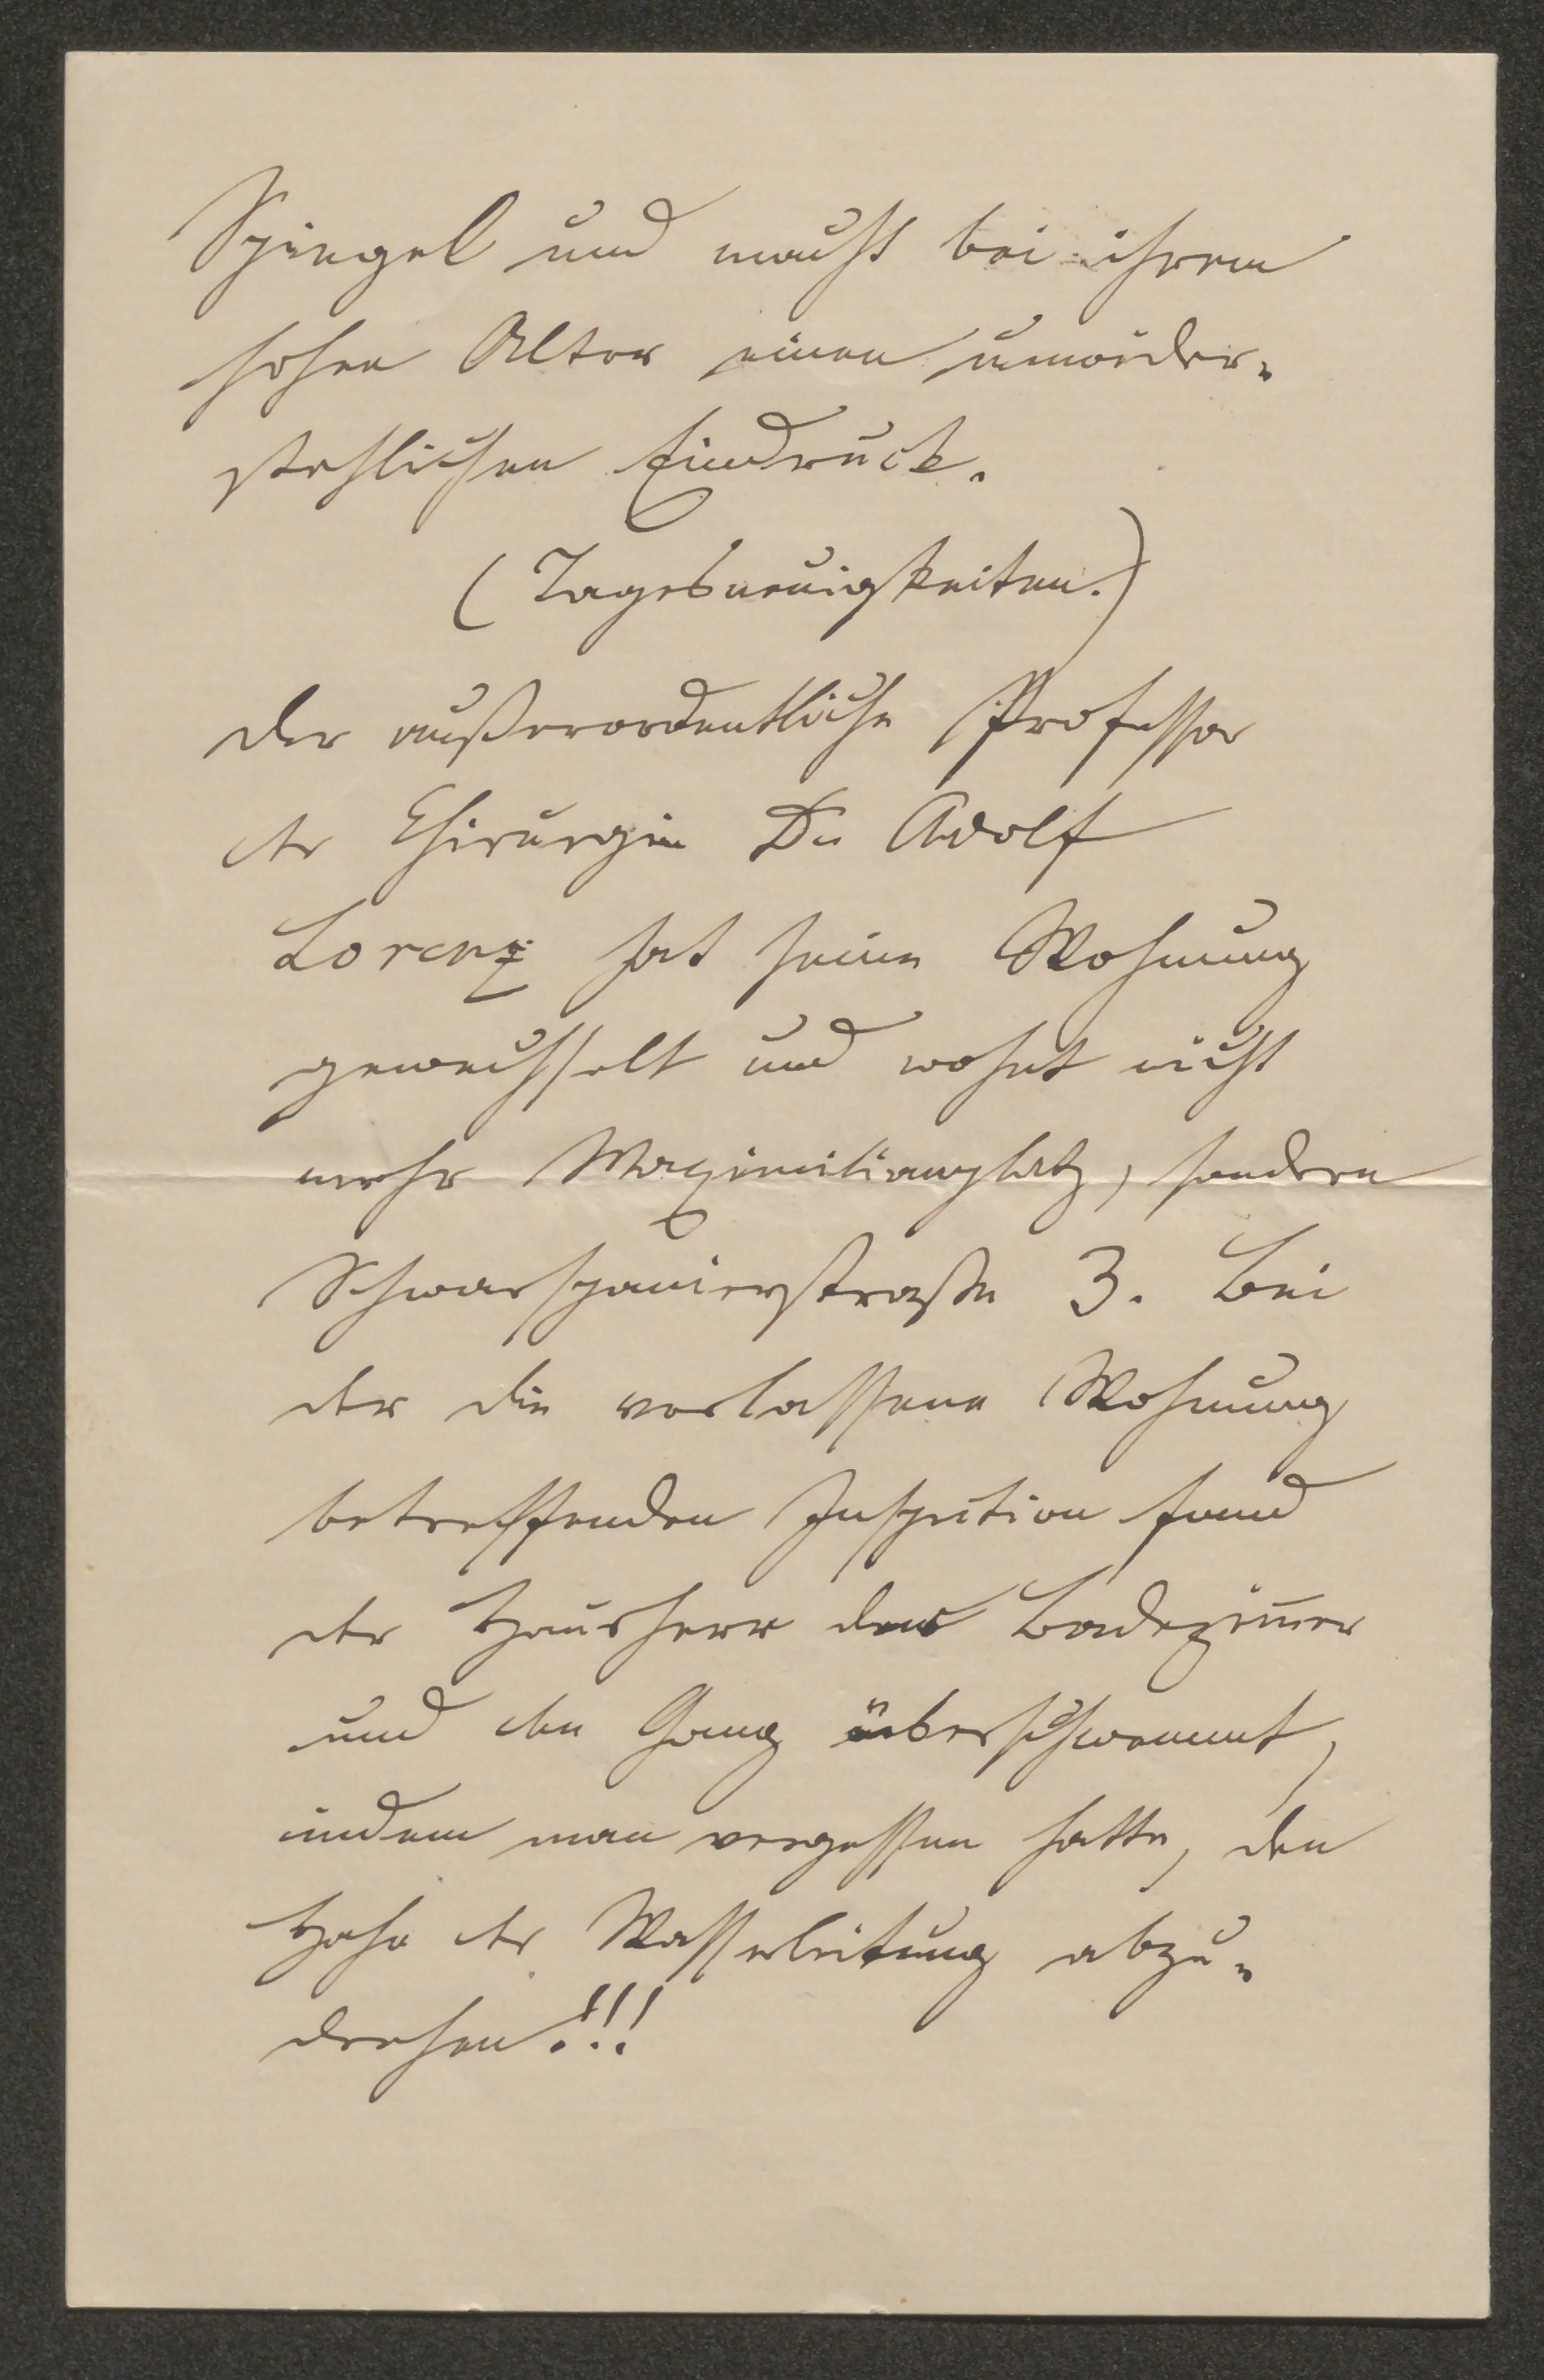 Spiegel und macht bei ihrem
hohen Alter einen unwider-
stehlichen Eindruck.
(Tagesneuigkeiten.)
Der außerordentliche Professor
der Chirurgie Dr. Adolf
Lorenz hat seine Wohnung
gewechselt und wohnt nicht
mehr Maximilianplatz, sondern
Schwarspanierstraße 3. Bei
der die verlassene Wohnung
betreffenden Inspection fand
der Hausherr das Badezimer
und den Gang überschwemmt,
indem man vergessen hatte, den
Hahn der Wasserleitung abzu-
drehen!!!